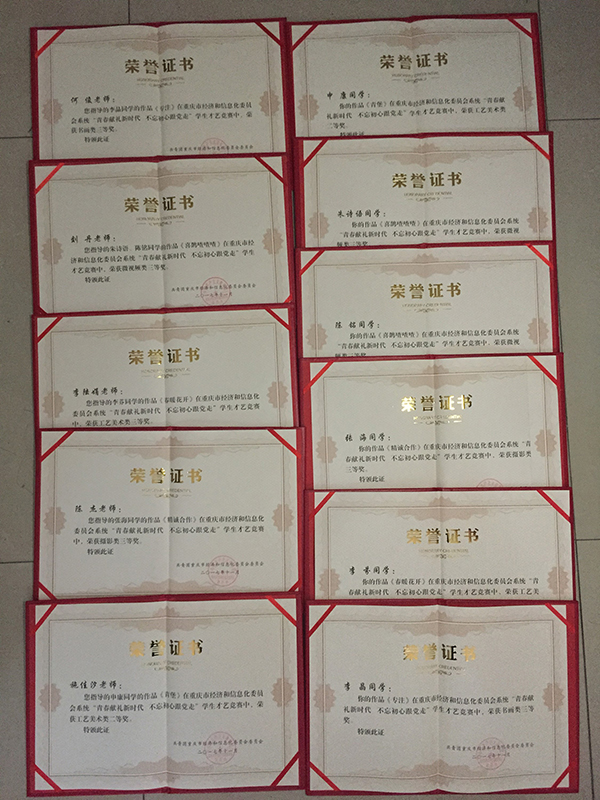 荣誉证书
何 俊老师：
您指导的李晶同学的作品《专注》在重庆市经济和信息化委员
会系统“青春献礼新时代 不忘初心跟党走”学生才艺竞赛中，荣
获书画类三等奖。
特颁此证
共青团重庆市经济和信息化委员会委员会
二〇一七年十一月
荣誉证书
刘 丹老师：
您指导的朱诗语、陈铭同学的作品《喜鹊喳喳喳》在重庆市经
济和信息化委员会系统“青春献礼新时代 不忘初心跟党走”学生
才艺竞赛中，荣获微视频类三等奖。
特颁此证
共青团重庆市经济和信息化委员会委员会
二〇一七年十一月
荣誉证书
李陆娟老师：
您指导的李芬同学的作品《春暖花开》在重庆市经济和信息化
委员会系统“青春献礼新时代 不忘初心跟党走”学生才艺竞赛
中，荣获工艺美术类三等奖。
荣誉证书
陈 杰老师：
您指导的张海同学的作品《精诚合作》在重庆市经济和信息化
委员会系统“青春献礼新时代 不忘初心跟党走”学生才艺竞赛
中，荣获摄影类三等奖。
特颁此证
共青团重庆市经济和信息化委员会委员会
二〇一七年十一月
荣誉证书
施佳汐老师：
您指导的申康同学的作品《青堡》在重庆市经济和信息化委员
会系统“青春献礼新时代 不忘初心跟党走”学生才艺竞赛中，荣
获工艺美术类二等奖。
特颁此证
共青团重庆市经济和信息化委员会委员会
二〇一七年十一月
荣誉证书
申 康同学：
你的作品《青堡》在重庆市经济和信息化委员会系统“青春献
礼新时代 不忘初心跟党走”学生才艺竞赛中，荣获工艺美术类
二等奖。
特颁此证
荣誉证书
朱诗语同学：
你的作品《喜鹊喳喳喳》在重庆市经济和信息化委员会系统
“青春献礼新时代 不忘初心跟党走”学生才艺竞赛中，荣获微视
频类三等奖。
荣誉证书
陈 铭同学：
你的作品《喜鹊喳喳喳》在重庆市经济和信息化委员会系统
“青春献礼新时代 不忘初心跟党走”学生才艺竞赛中，荣获微视
频类三等奖。
荣誉证书
张 海同学：
你的作品《精诚合作》在重庆市经济和信息化委员会系统“青
春献礼新时代 不忘初心跟党走”学生才艺竞赛中，荣获摄影类
三等奖。
特颁此证
荣誉证书
李 芬同学：
你的作品《春暖花开》在重庆市经济和信息化委员会系统“青
春献礼新时代 不忘初心跟党走”学生才艺竞赛中，荣获工艺美
荣誉证书
李 晶同学：
你的作品《专注》在重庆市经济和信息化委员会系统“青春献
礼新时代 不忘初心跟党走”学生才艺竞赛中，荣获书画类三等
奖。
特颁此证
共青团重庆市经济和信息化委员会委员会
二〇一七年十一月